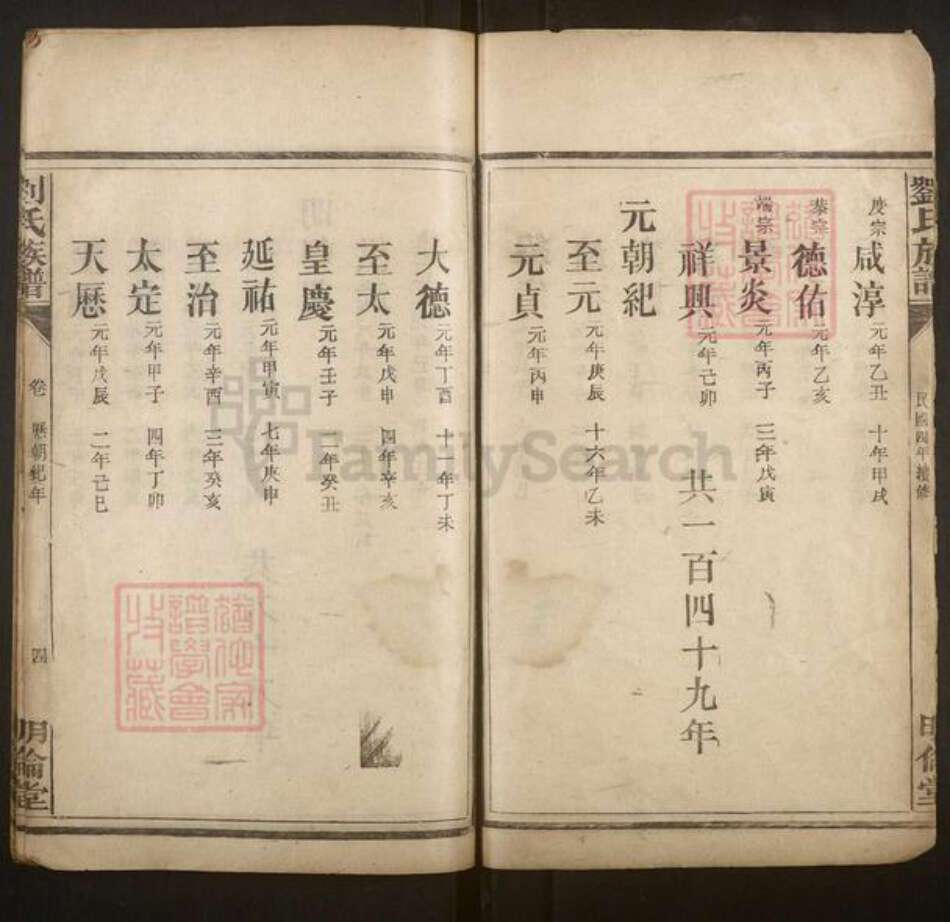 劉氏族譜
民國四年接修
明倫堂
度宗 咸淳 元年乙丑 十年甲戌
恭宗 德佑 元年乙亥
端宗 景炎 元年丙子 三年戊寅
祥興 元年己卯 共一百四十九年
元朝紀
至元 元年庚辰 十六年乙未
元貞 元年丙申
大德 元年丁酉 十一年丁未
至太 元年戊申 四年辛亥
皇慶 元年壬子 二年癸丑
延祐 元年甲寅 七年庚申
至治 元年辛酉 三年癸亥
太定 元年甲子 四年丁卯
天厯 元年戊辰 二年己巳
劉氏族譜
卷 歷朝紀年 四
明倫堂
譜學會
收藏
FamilySearch